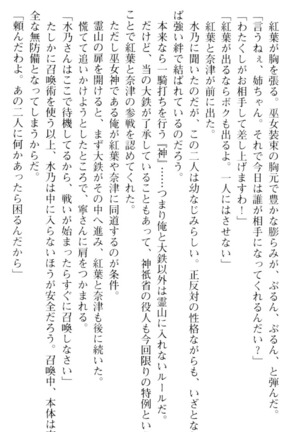 紅葉が胸を張る。巫女装束の胸元で豊かな膨らみが、ぶるん、ぶるん、と弾んだ。
「言うねぇ、姉ちゃん。それで今日は誰が相手になってくれるんだい？」
「わたくしがお相手して差し上げますわ！」
「紅葉が出るならボクも出るよ。一人にはさせない」
紅葉と奈津が前に出た。
水乃に聞いたのだが、この二人は幼なじみらしい。正反対の性格ながらも、いざとな
れば強い絆で結ばれているのだろう。
本来なら一騎打ちを行う『神』……つまり俺と大鉄以外は霊山に入れないルール。だ
けど、当の大鉄が了承していることもあって、神祇省の役人も今回限りの特例という
ことで紅葉と奈津の参戦を認めてくれた。
ただし巫女神である俺が紅葉や奈津に同道するのが条件。
霊山の扉を開けると、まず大鉄がその中へ進み、紅葉と奈津も後に続いた。
慌てて追いかけようとしたところで、寧さんに肩をつかまれる。
「水乃さんはここで待機してるから、戦いが始まったらすぐに召喚しなさい」
たしかに召喚術を使う以上、水乃は中に入らないほうが安全だろう。召喚中、本体は完
全な無防備となってしまうからだ。
「頼んだわよ。あの二人に何かあったら困るんだから」